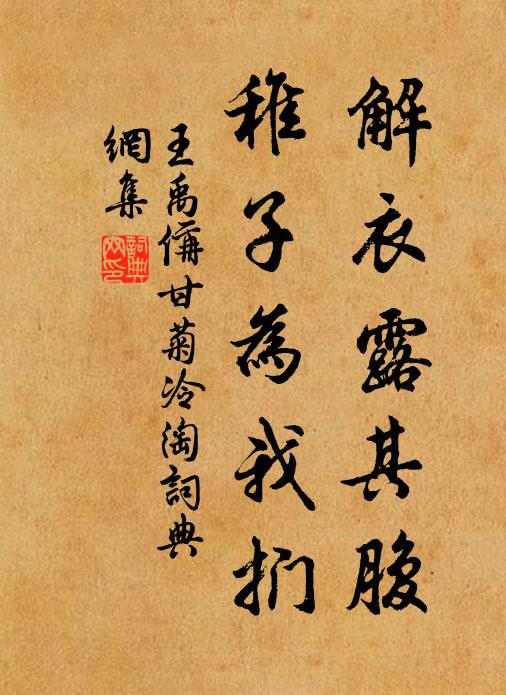 解衣露其腹
稚子為我捫
王禹偁甘菊冷淘詞典
網集
詞典
网印